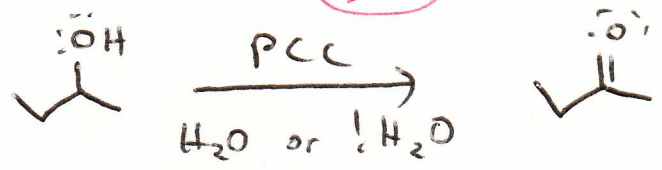 :ÖH
PCC
H₂O or !H₂O
:O: